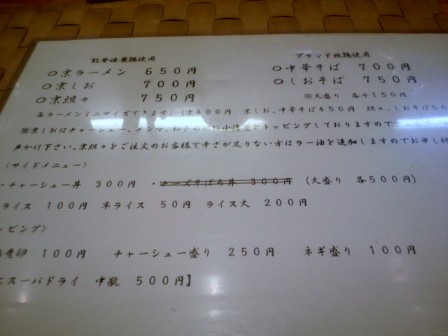 使用 ブランド地鶏使用
〇京ラーメン 650円 〇中華そば 700円
〇京しお 700円 〇しおそば 750円
〇京担々 750円 ※大盛り 各+150円
各ラーメンミニサイズできます 京 400円 京しお、中華そば450円 担々、しおそば
※京しおはチャーシュー、メンマ、 トッピングしておりますので
声かけ下さい。京担々をご注文のお客様で辛さが足りない方はラー油を追加しますのでお申し付
〈サイドメニュー〉
・チャーシュー丼 300円 ・チーズそぼろ丼 300円 (大盛り 各500円)
ライス 100円 半ライス 50円 ライス大 200円
ッピング〉
卵 100円 チャーシュー盛り 250円 ネギ盛り 100円
スーパドライ 中瓶 500円】